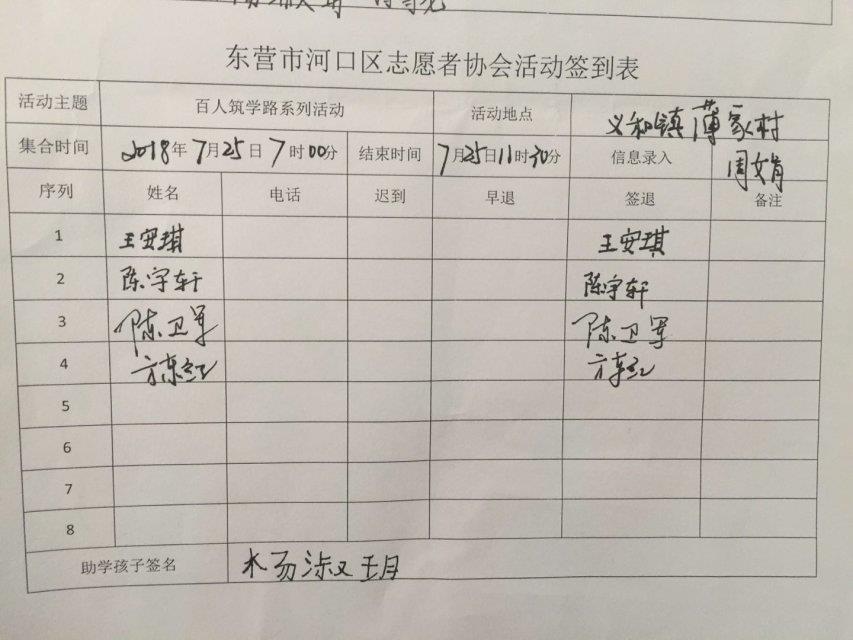 东营市河口区志愿者协会活动签到表
活动主题 百人筑学路系列活动 活动地点 义和镇薄家村
集合时间 2018年7月25日7时00分 结束时间 7月25日11时30分 信息录入 周娟
序列 姓名 电话 迟到 早退 签退 备注
1 王安琪 王安琪
2 陈宇轩 陈宇轩
3 陈卫军 陈卫军
4 方东红 方东红
5
6
7
8
助学孩子签名 杨淑玥